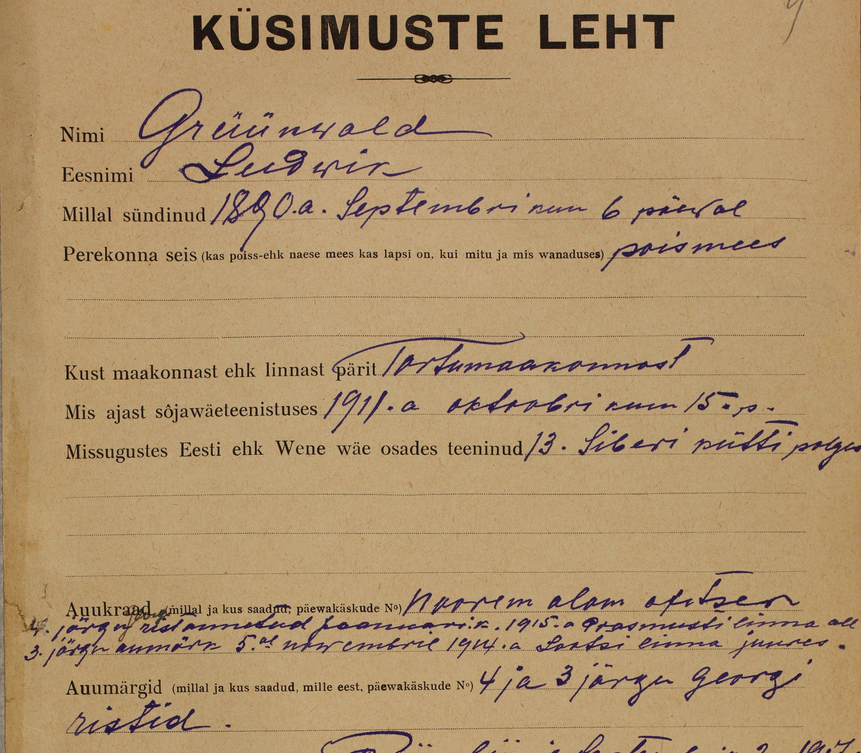 KÜSIMUSTE LEHT
Nimi Grüünwald
Eesnimi Ludwik
Millal sündinud 1890.a. Septembri kuu 6 päewal
Perekonna seis (kas poiss-ehk naese mees kas lapsi on, kui mitu ja mis wanaduses) poismees
Kust maakonnast ehk linnast pärit Tartumaakonnast
Mis ajast sõjawäeteenistuses 1911.a oktoobri kuu 15.p.
Missugustes Eesti ehk Wene wäe osades teeninud 13. Siberi kütti polgus
Auukraad (millal ja kus saadud, päewakäskude No) Noorem alam ofitser
4. järgu rist annetud jaanuari k. 1915.a linna all
3. järgu aumärk 5.al nowembril 1914.a linna juures.
Auumärgid (millal ja kus saadud, mille eest, päewakäskude No) 4 ja 3 järgu Georgi
ristid.